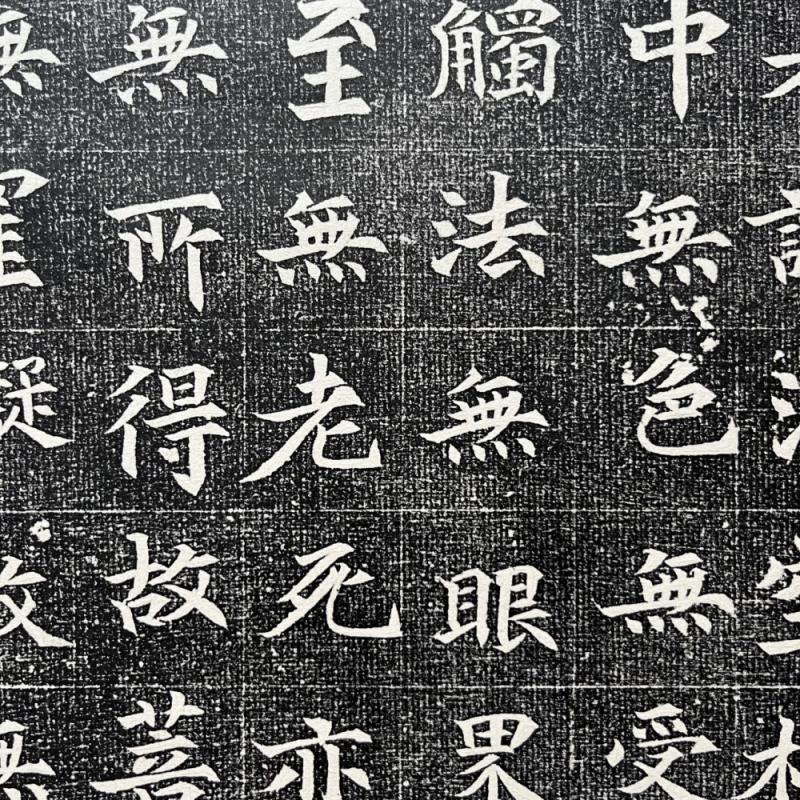 中無色無受
觸法無眼界
至無老死亦
無所得故菩